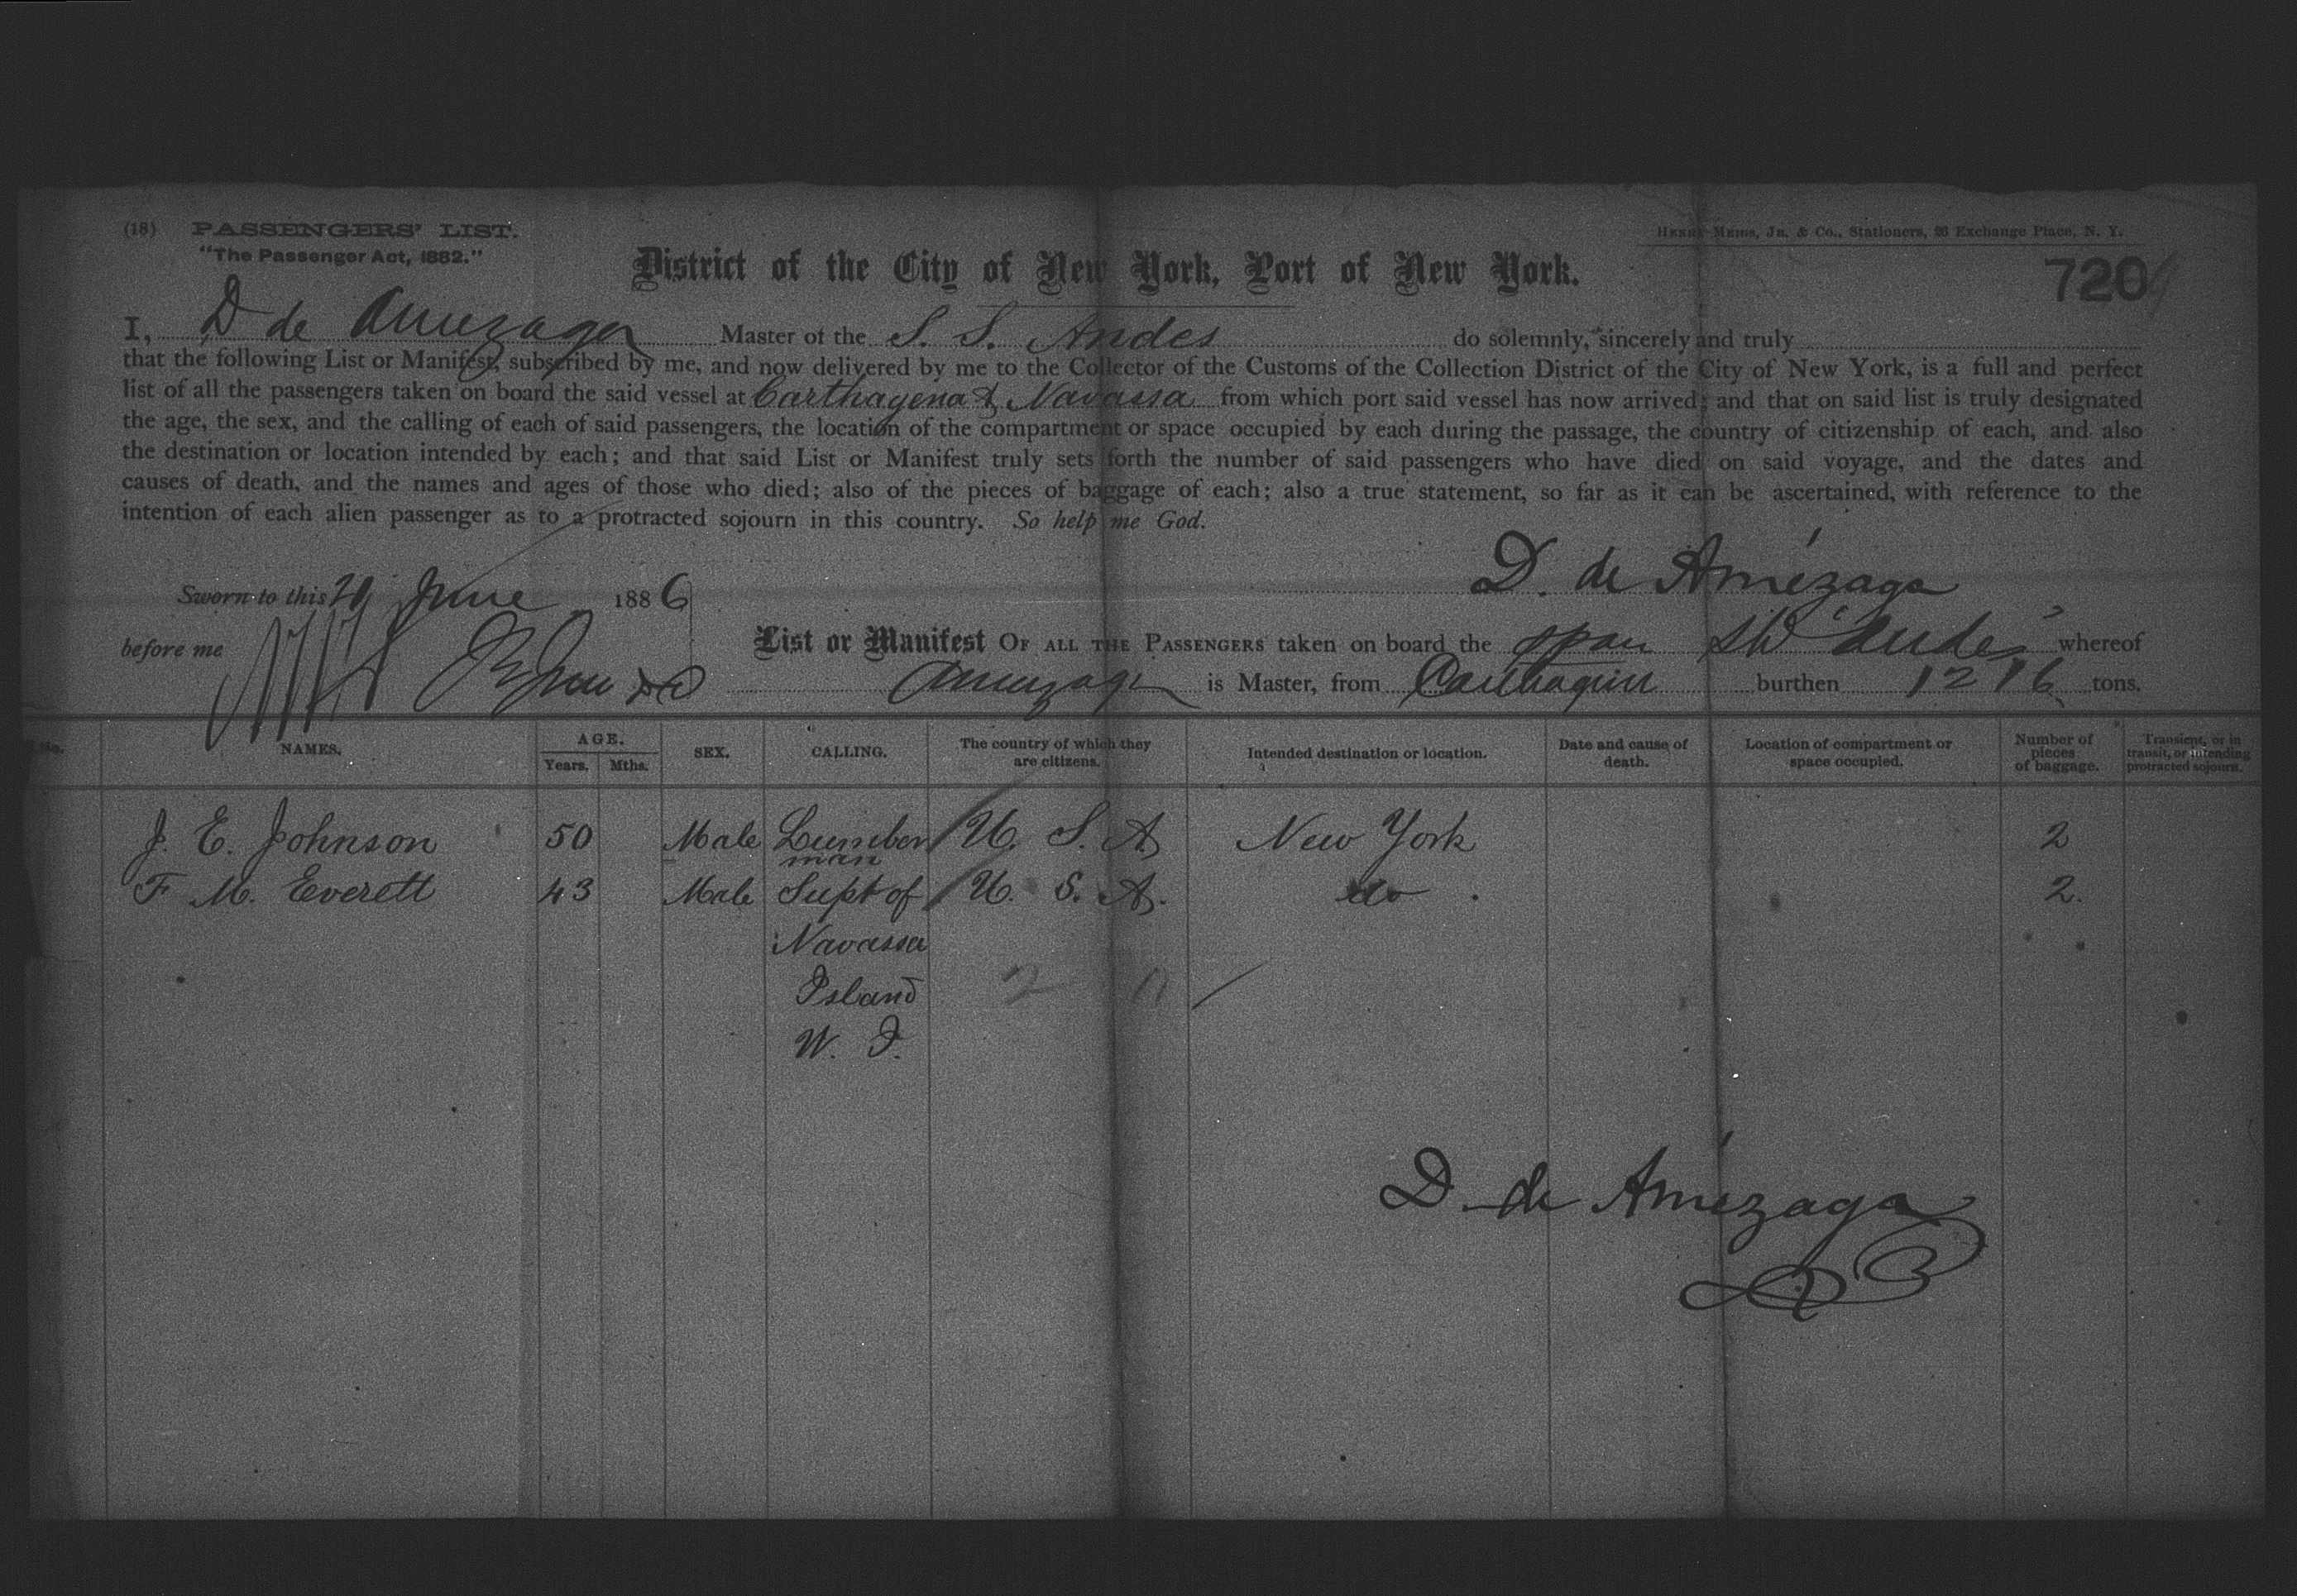 (18) PASSENGERS' LIST.
"The Passenger Act, 1882."
HENRY MEIGS, JR. & CO., Stationers, 26 Exchange Place, N. Y.
District of the City of New York, Port of New York.
720
I, D de Amezaga Master of the S. S. Andes do solemnly, sincerely and truly
that the following List or Manifest, subscribed by me, and now delivered by me to the Collector of the Customs of the Collection District of the City of New York, is a full and perfect
list of all the passengers taken on board the said vessel at Carthagena & Navassa from which port said vessel has now arrived; and that on said list is truly designated
the age, the sex, and the calling of each of said passengers, the location of the compartment or space occupied by each during the passage, the country of citizenship of each, and also
the destination or location intended by each; and that said List or Manifest truly sets forth the number of said passengers who have died on said voyage, and the dates and
causes of death, and the names and ages of those who died; also of the pieces of baggage of each; also a true statement, so far as it can be ascertained, with reference to the
intention of each alien passenger as to a protracted sojourn in this country. So help me God.
D. de Amézaga
Sworn to this June 1886
before me
List or Manifest OF ALL THE PASSENGERS taken on board the Span "Andes" whereof
Amezaga is Master, from burthen 1216 tons.
No. NAMES. AGE. Years. Mths. SEX. CALLING. The country of which they are citizens. Intended destination or location. Date and cause of death. Location of compartment or space occupied. Number of pieces of baggage. Transient, or in transit, or intending protracted sojourn.
J. E. Johnson 50 Male Lumber man U. S. A New York 2
F M. Everett 43 Male Supt of U. S. A. do. 2.
Navassa
Island
W. I.
D. de Amézaga